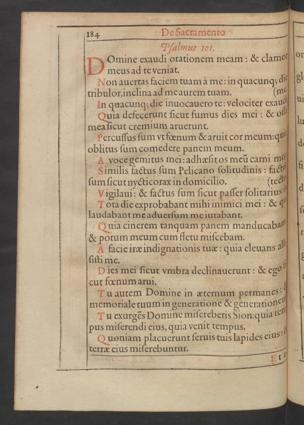 184 De Sacramento
Psalmus 101.
Domine exaudi orationem meam: & clamor
meus ad te veniat.
Non auertas faciem tuam à me: in quacunq; die
tribulor, inclina ad me aurem tuam. (me.
In quacunq; die inuocauero te: velociter exaudi
Quia defecerunt sicut fumus dies mei: & ossa
mea sicut cremium aruerunt.
Percussus sum vt fœnum & aruit cor meum: quia
oblitus sum comedere panem meum.
A voce gemitus mei: adhæsit os meũ carni meæ
Similis factus sum Pelicano solitudinis: factus
sum sicut nycticorax in domicilio. (tecto
Vigilaui: & factus sum sicut passer solitarius in
Tota die exprobabant mihi inimici mei: & qui
laudabant me aduersum me iurabant.
Quia cinerem tanquam panem manducabam
& potum meum cum fletu miscebam.
A facie iræ indignationis tuæ: quia eleuans alli-
sisti me.
Dies mei sicut vmbra declinauerunt: & ego si-
cut fœnum arui.
Tu autem Domine in æternum permanes: &
memoriale tuum in generatione & generationem
Tu exurgẽs Domine misereberis Sion: quia tem-
pus miserendi eius, quia venit tempus.
Quoniam placuerunt seruis tuis lapides eius: &
terræ eius miserebuntur.
Et